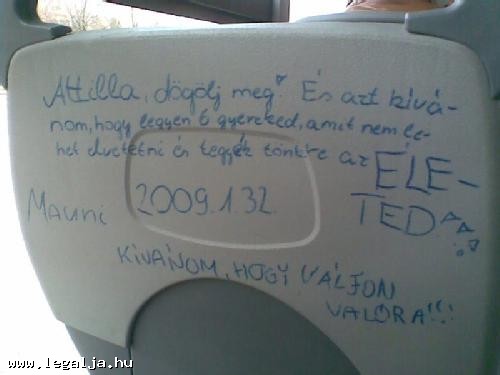 Attilla, dögölj meg! És azt kívá-
nom, hogy legyen 6 gyereked, amit nem le-
het elvetetni és tegyék tönkre az ÉLE-
TED
Mauni 2009.1.32.
KÍVÁNOM, HOGY VÁLJON
VALÓRA!!!
www.legalja.hu